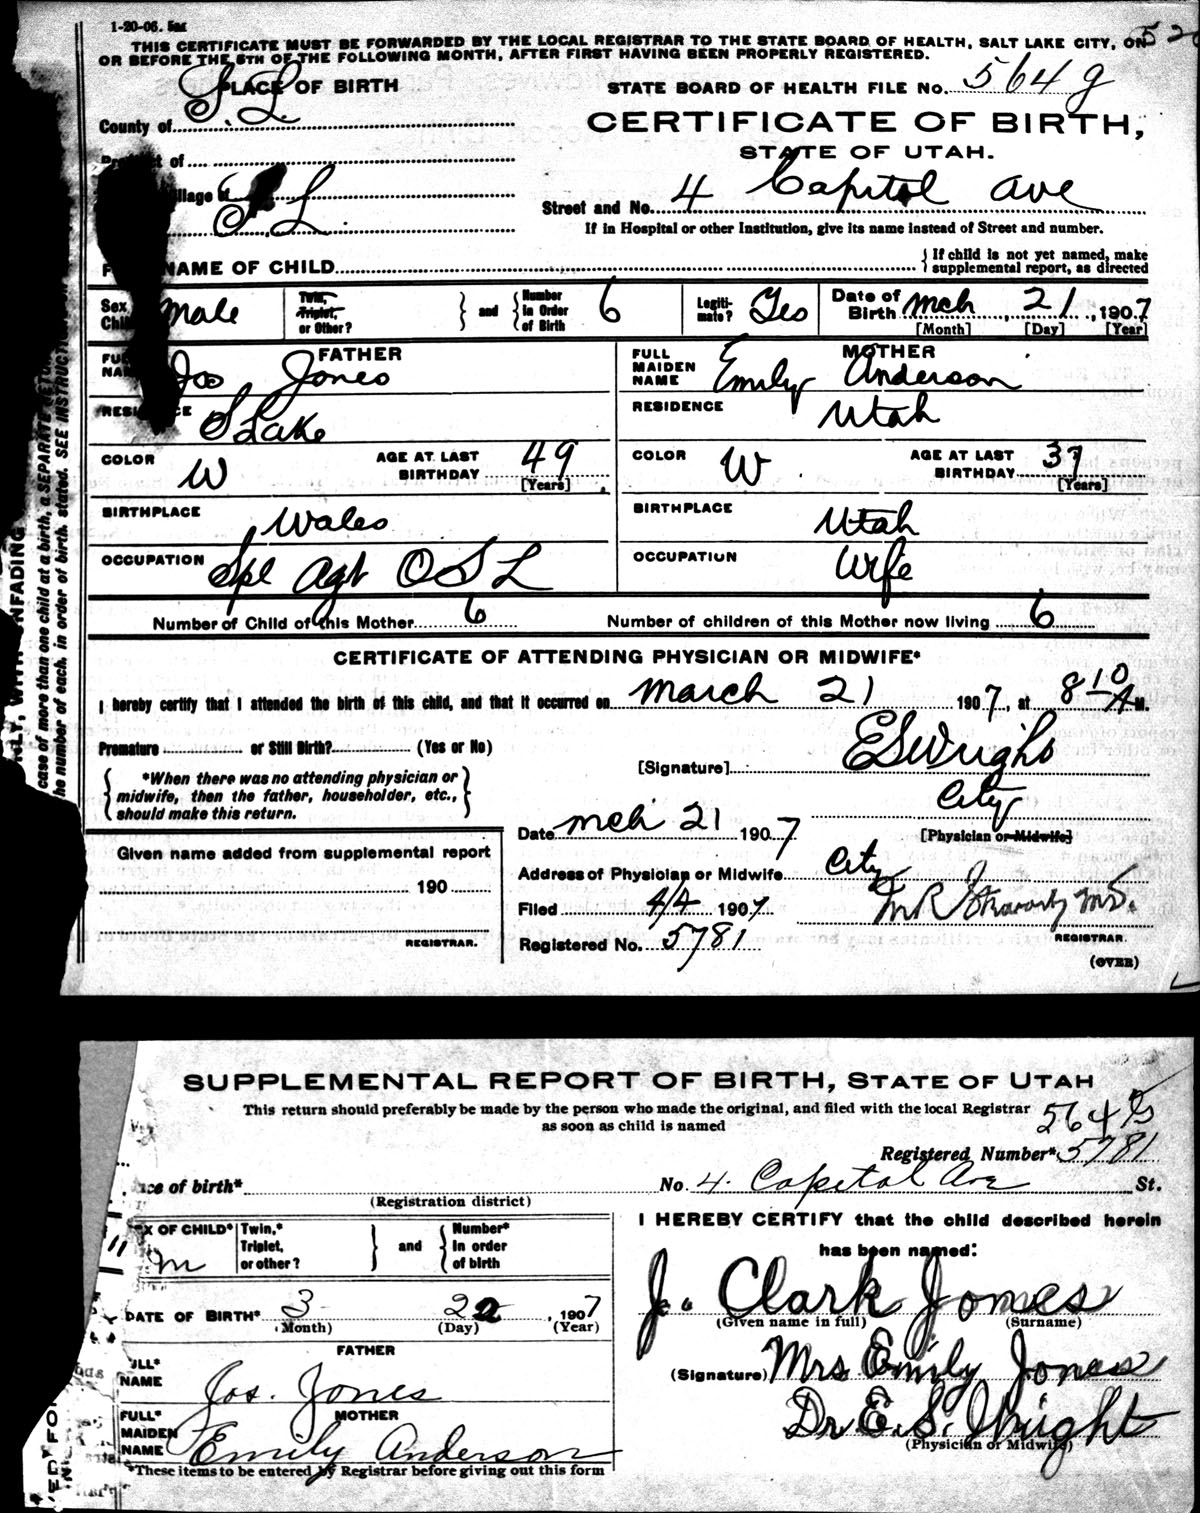 1-20-06. 5m
THIS CERTIFICATE MUST BE FORWARDED BY THE LOCAL REGISTRAR TO THE STATE BOARD OF HEALTH, SALT LAKE CITY, ON
OR BEFORE THE 5TH OF THE FOLLOWING MONTH, AFTER FIRST HAVING BEEN PROPERLY REGISTERED.
PLACE OF BIRTH
STATE BOARD OF HEALTH FILE No. 564 g
County of S. L.
CERTIFICATE OF BIRTH,
STATE OF UTAH.
t of
illage of S L.
Street and No. 4 Capitol Ave
If in Hospital or other Institution, give its name instead of Street and number.
NAME OF CHILD
If child is not yet named, make
supplemental report, as directed
Sex Child Male
Twin, Triplet, or Other?
and
Number in Order of Birth 6
Legiti-mate? Yes
Date of Birth Mch 21, 1907
[Month] [Day] [Year]
FATHER
MOTHER
FULL NAME Jos Jones
FULL MAIDEN NAME Emily Anderson
RESIDENCE S Lake
RESIDENCE Utah
COLOR W
AGE AT LAST BIRTHDAY 49
[Years]
COLOR W
AGE AT LAST BIRTHDAY 37
[Years]
BIRTHPLACE Wales
BIRTHPLACE Utah
OCCUPATION Spl Agt O S L
OCCUPATION Wife
Number of Child of this Mother 6
Number of children of this Mother now living 6
CERTIFICATE OF ATTENDING PHYSICIAN OR MIDWIFE*
I hereby certify that I attended the birth of this child, and that it occurred on March 21 1907, at 8 10 A M.
Premature or Still Birth? (Yes or No)
[Signature] E S Wright
City
*When there was no attending physician or
midwife, then the father, householder, etc.,
should make this return.
Date Mch 21 1907
[Physician or Midwife]
Given name added from supplemental report
190
REGISTRAR.
Address of Physician or Midwife City
Filed 4/4 1907
M.D.
REGISTRAR.
Registered No. 5781
(OVER)
NLY, WITH UNFADING
case of more than one child at a birth, a SEPARATE RETU
he number of each, in order of birth, stated. SEE INSTRUCTI
SUPPLEMENTAL REPORT OF BIRTH, STATE OF UTAH
This return should preferably be made by the person who made the original, and filed with the local Registrar
as soon as child is named
564
Registered Number* 5781
ace of birth*
(Registration district)
No. 4. Capitol Ave St.
EX OF CHILD* M
Twin,* Triplet, or other?
and
Number* in order of birth
I HEREBY CERTIFY that the child described herein
has been named:
J. Clark Jones
(Given name in full) (Surname)
DATE OF BIRTH* 3 22, 1907
(Month) (Day) (Year)
FATHER
ULL* NAME Jos. Jones
(Signature) Mrs Emily Jones
Dr E. S. Wright
(Physician or Midwife)
MOTHER
FULL* MAIDEN NAME Emily Anderson
*These items to be entered by Registrar before giving out this form